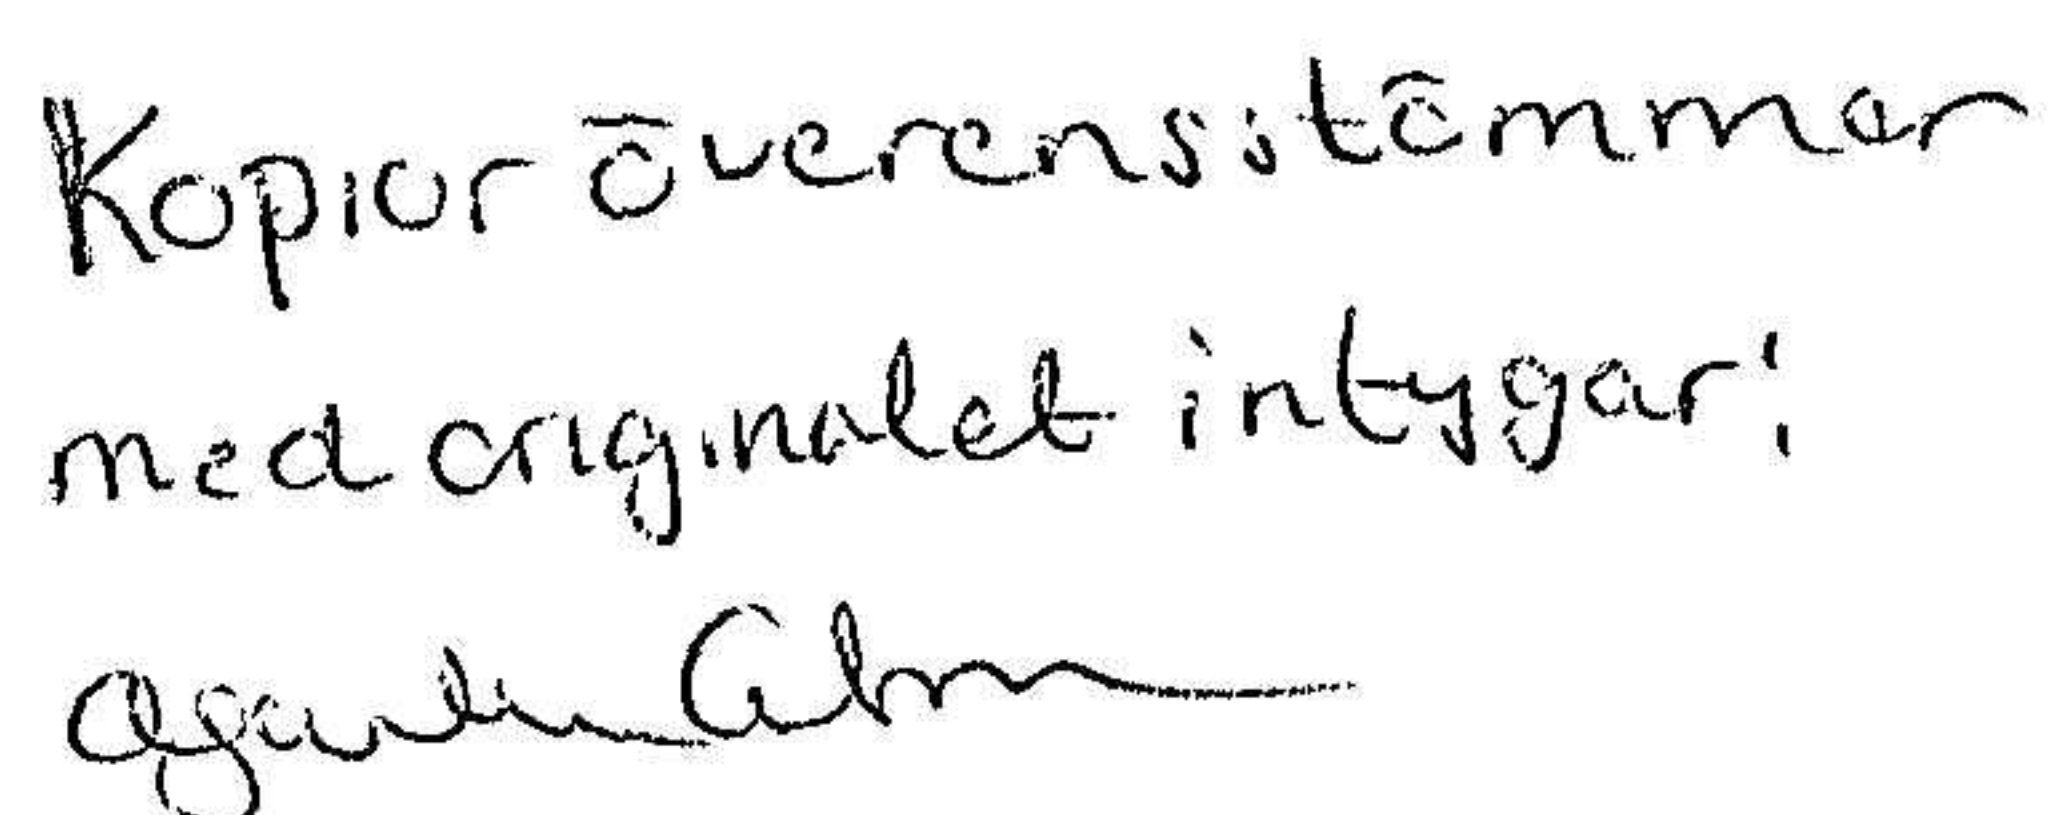 Kopior överensstämmer
med originalet intygar: